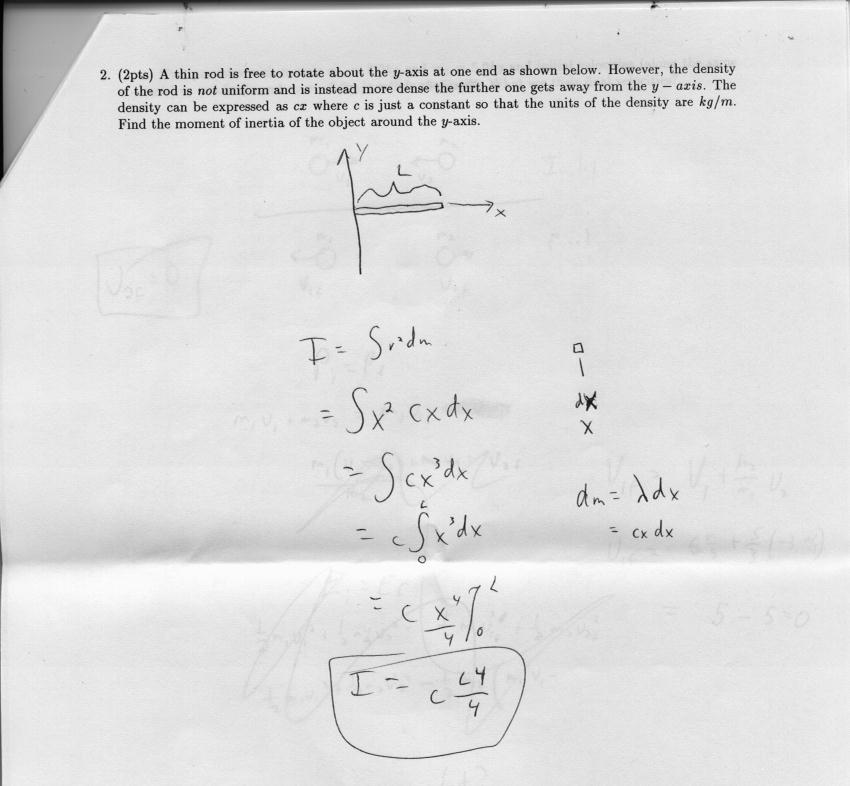 2. (2pts) A thin rod is free to rotate about the y-axis at one end as shown below. However, the density
of the rod is not uniform and is instead more dense the further one gets away from the y − axis. The
density can be expressed as cx where c is just a constant so that the units of the density are kg/m.
Find the moment of inertia of the object around the y-axis.
Y
L
x
I = ∫r²dm
= ∫x² cx dx
dx
x
= ∫cx³dx
dm = λdx
= c∫₀ᴸ x³dx
= cx dx
= c x⁴/4 ]₀ᴸ
I = c L4/4